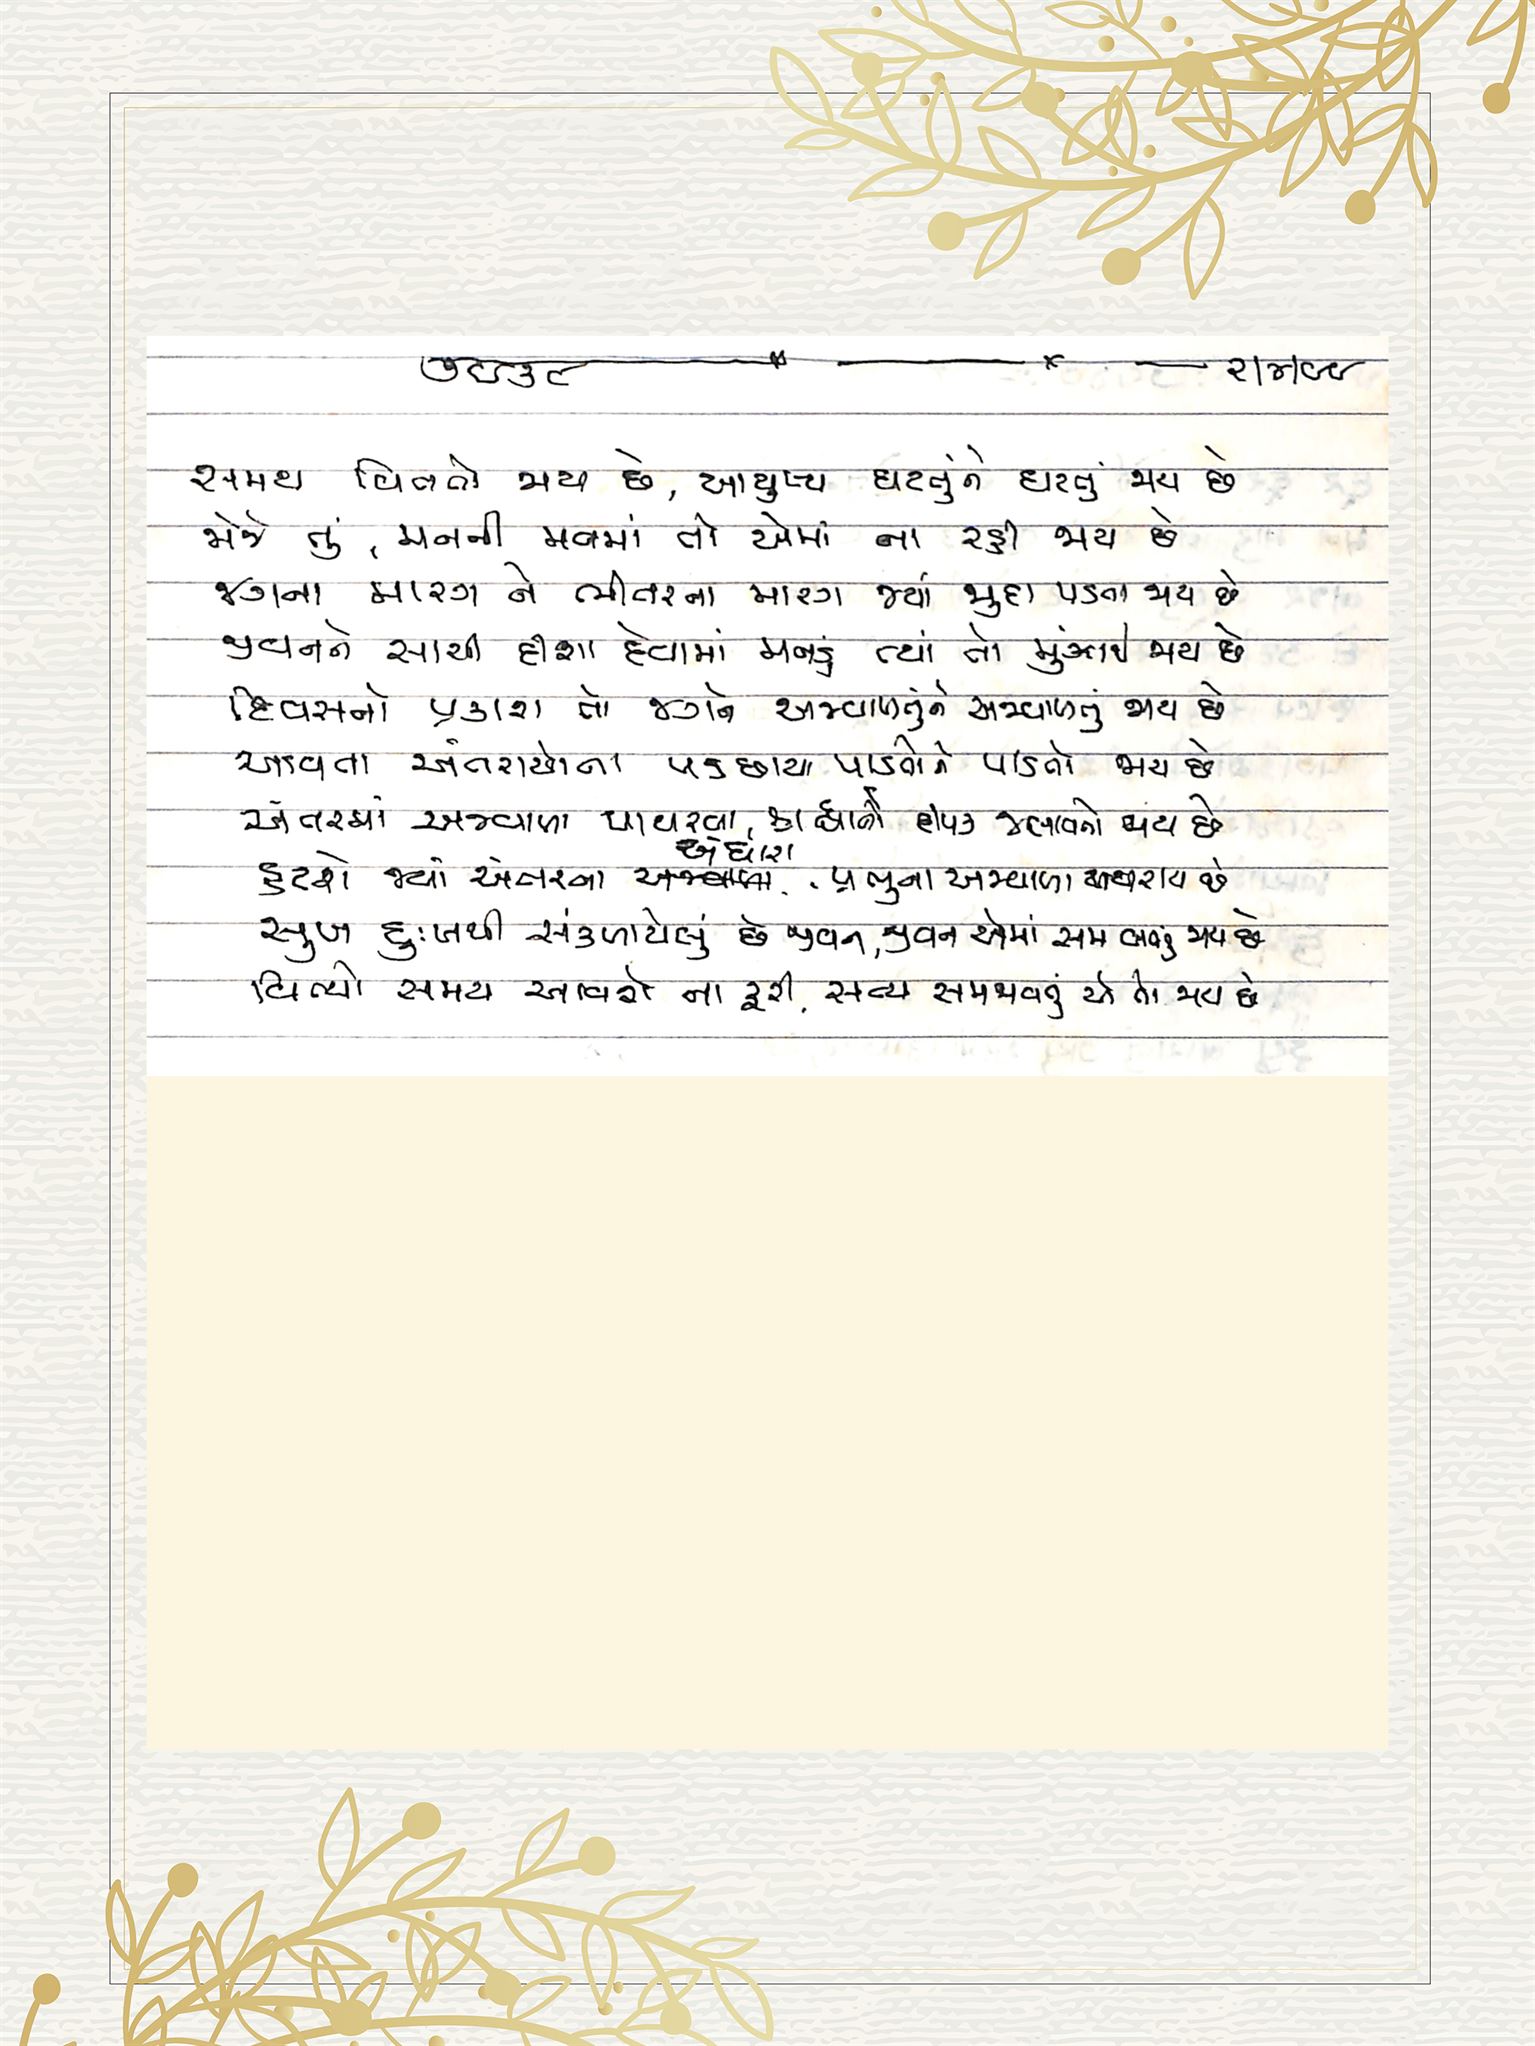 સમય વિતતો જાય છે, આયુષ્ય ઘટતુંને ઘટતું જાય છે
જોજે તું, મનની મનમાં તો એમાં ના રહી જાય છે
જગના મારગ ને ભીતરના મારગ જ્યાં જુદા પડતા જાય છે
જીવનને સાચી દીશા દેવામાં મનડું ત્યાં તો મુંઝાઈ જાય છે
દિવસનો પ્રકાશ તો જગને અજવાળતુંને અજવાળતું જાય છે
આવતા અંતરાયોના પડછાયા પાડતોને પાડતો જાય છે
અંતરમાં અજવાળા પાથરવા, દીપક જલાવતો જાય છે
હટશે જ્યાં અંતરના અંધારા, પ્રભુના અજવાળા પથરાય છે
સુખ દુઃખથી સંકળાયેલું છે જીવન, જીવન એમાં જાય છે
વિત્યો સમય આવશે ના ફરી, સત્ય સમજાવતું એ તો જાય છે